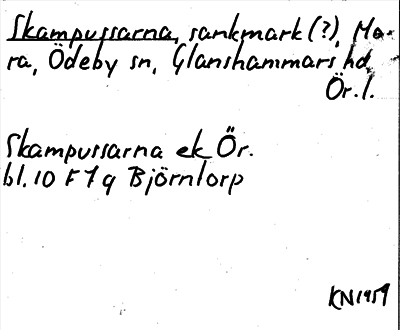 Skampussarna, sankmark (?), Mo-
ra, Ödeby sn, Glanshammars hd,
Ör. l.
Skampussarna ek Ör.
bl. 10 F 7 g Björntorp
KN 1959